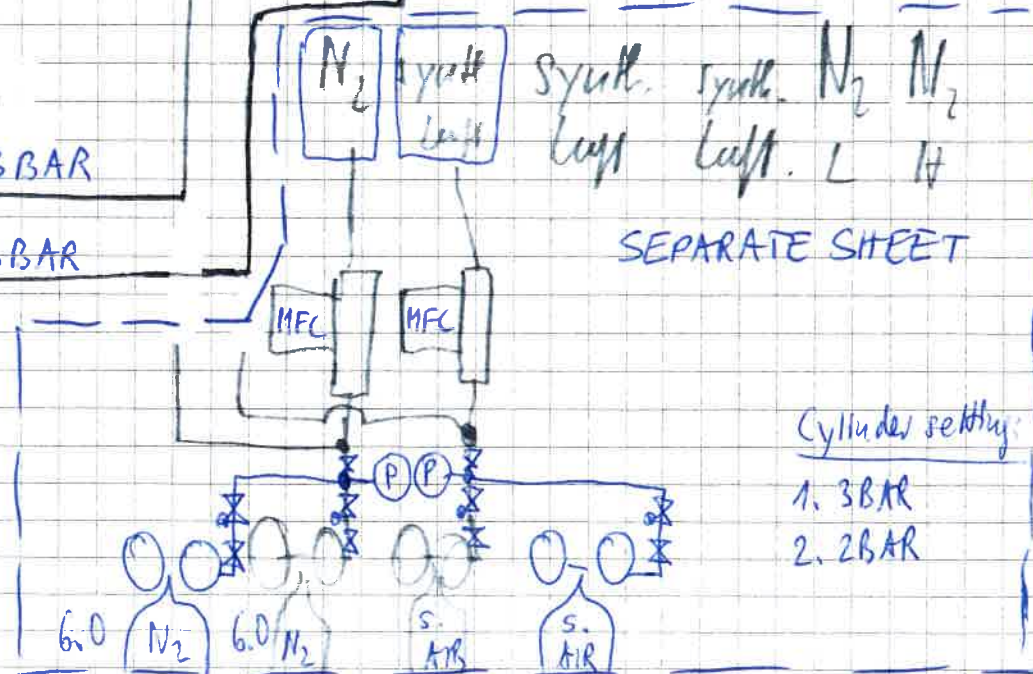 N2 synth Luft
Synth. Luft
Synth. Luft.
N2 L
N2 H
3BAR
BAR
SEPARATE SHEET
MFC MFC
Cylinder setting:
1. 3BAR
2. 2BAR
P P
6.0 N2
6.0 N2
S. AIR
S. AIR